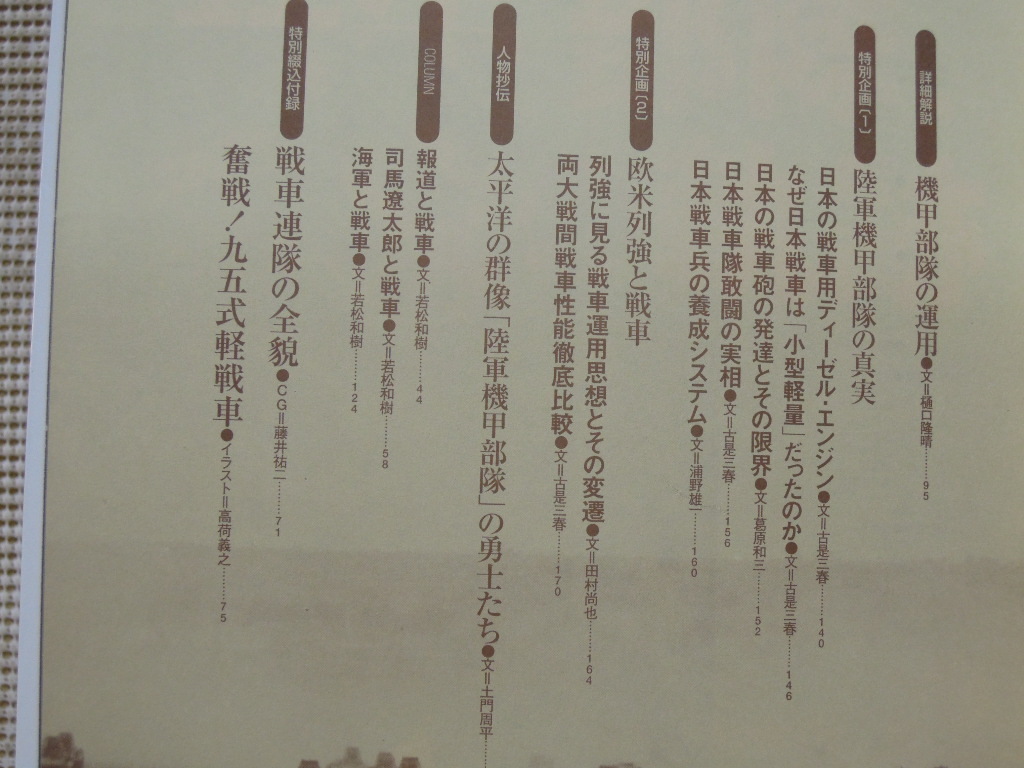 詳細解説
機甲部隊の運用●文=樋口隆晴………95
特別企画〔1〕
陸軍機甲部隊の真実
日本の戦車用ディーゼル・エンジン●文=古是三春………140
なぜ日本戦車は「小型軽量」だったのか●文=古是三春………146
日本の戦車砲の発達とその限界●文=葛原和三………152
日本戦車隊敢闘の実相●文=古是三春………156
日本戦車兵の養成システム●文=浦野雄一………160
特別企画〔2〕
欧米列強と戦車
列強に見る戦車運用思想とその変遷●文=田村尚也………164
両大戦間戦車性能徹底比較●文=古是三春………170
人物抄伝
太平洋の群像「陸軍機甲部隊」の勇士たち●文=土門周平………
COLUMN
報道と戦車●文=若松和樹………44
司馬遼太郎と戦車●文=若松和樹………58
海軍と戦車●文=若松和樹………124
特別綴込付録
戦車連隊の全貌●CG=藤井祐二………71
奮戦!九五式軽戦車●イラスト=高荷義之………75